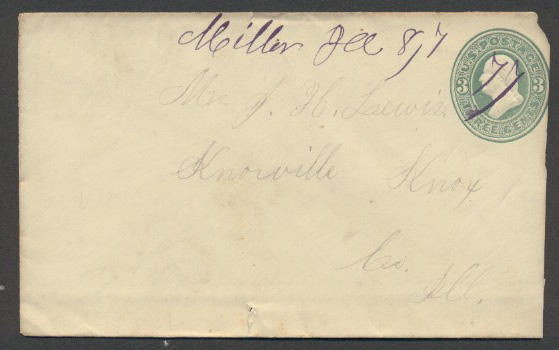 Miller Ill 8/7 77
U.S. POSTAGE
3 3
THREE CENTS
Mr J. H. Lewis.
Knoxville Knox
Co.
Ill.